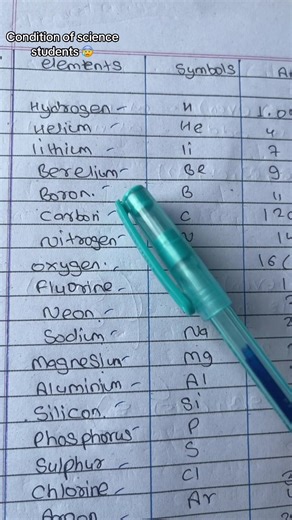 Condition of science
students 😨
elements Symbols
Hydrogen - H 1.0
Helium - He 4
lithium - li 7
Berelium - Be 9
Boron. - B 11
Carbon - C 12
Nitrogen 14
oxygen. - 16
Fluorine -
Neon. -
Sodium - Na
Magnesium - mg
Aluminium - Al
Silicon. - Si
Phosphorus - P
Sulphur - S
Chlorine - Cl
Argon Ar